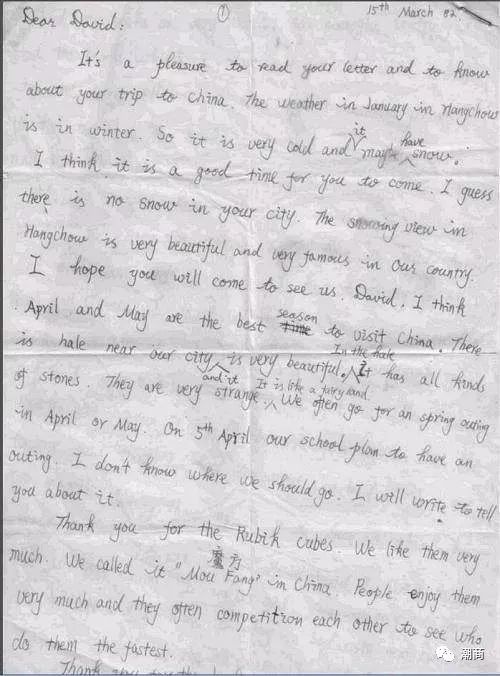 ①
15th March 82
Dear David:
It's a pleasure to read your letter and to know
about your trip to China. The weather in January in Hangchow
is in winter. So it is very cold and it maybe have snow.
I think, it is a good time for you to come. I guess
there is no snow in your city. The snowing view in
Hangchow is very beautiful and very famous in our country.
I hope you will come to see us. David, I think
April and May are the best season to visit China. There
is hale near our city and it is very beautiful. In the hale it has all kinds
of stones. They are very strange. It is like a fairy land. We often go for an spring outing
in April or May. On 5th April our school plan to have an
outing. I don't know where we should go. I will write to tell
you about it.
Thank you for the Rubik cubes. We like them very
much. We called it "Mou Fang" 魔方 in China. People enjoy them
very much and they often competition each other to see who
do them the fastest.
Thank you for the
潮商